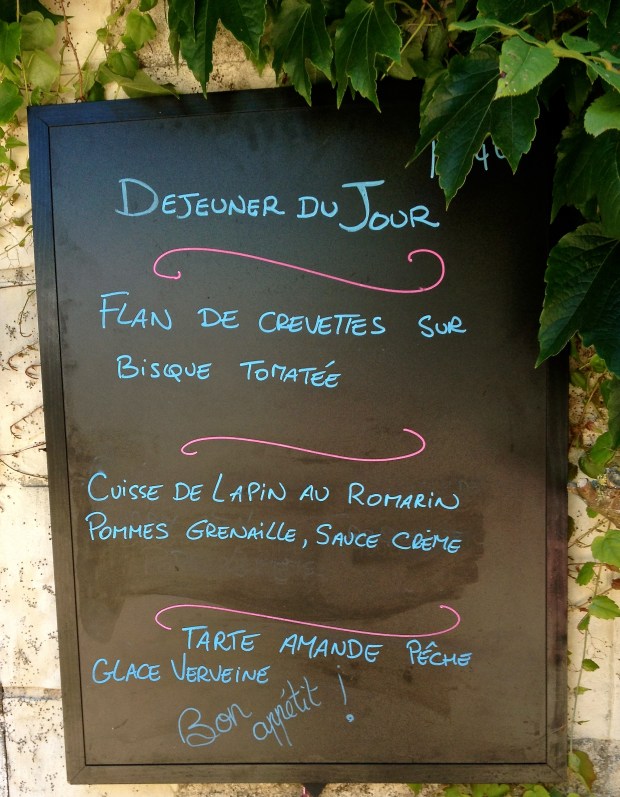 DEJEUNER DU JOUR
FLAN DE CREVETTES SUR
BISQUE TOMATÉE
CUISSE DE LAPIN AU ROMARIN
POMMES GRENAILLE, SAUCE CRÈME
TARTE AMANDE PÊCHE
GLACE VERVEINE
Bon appétit !